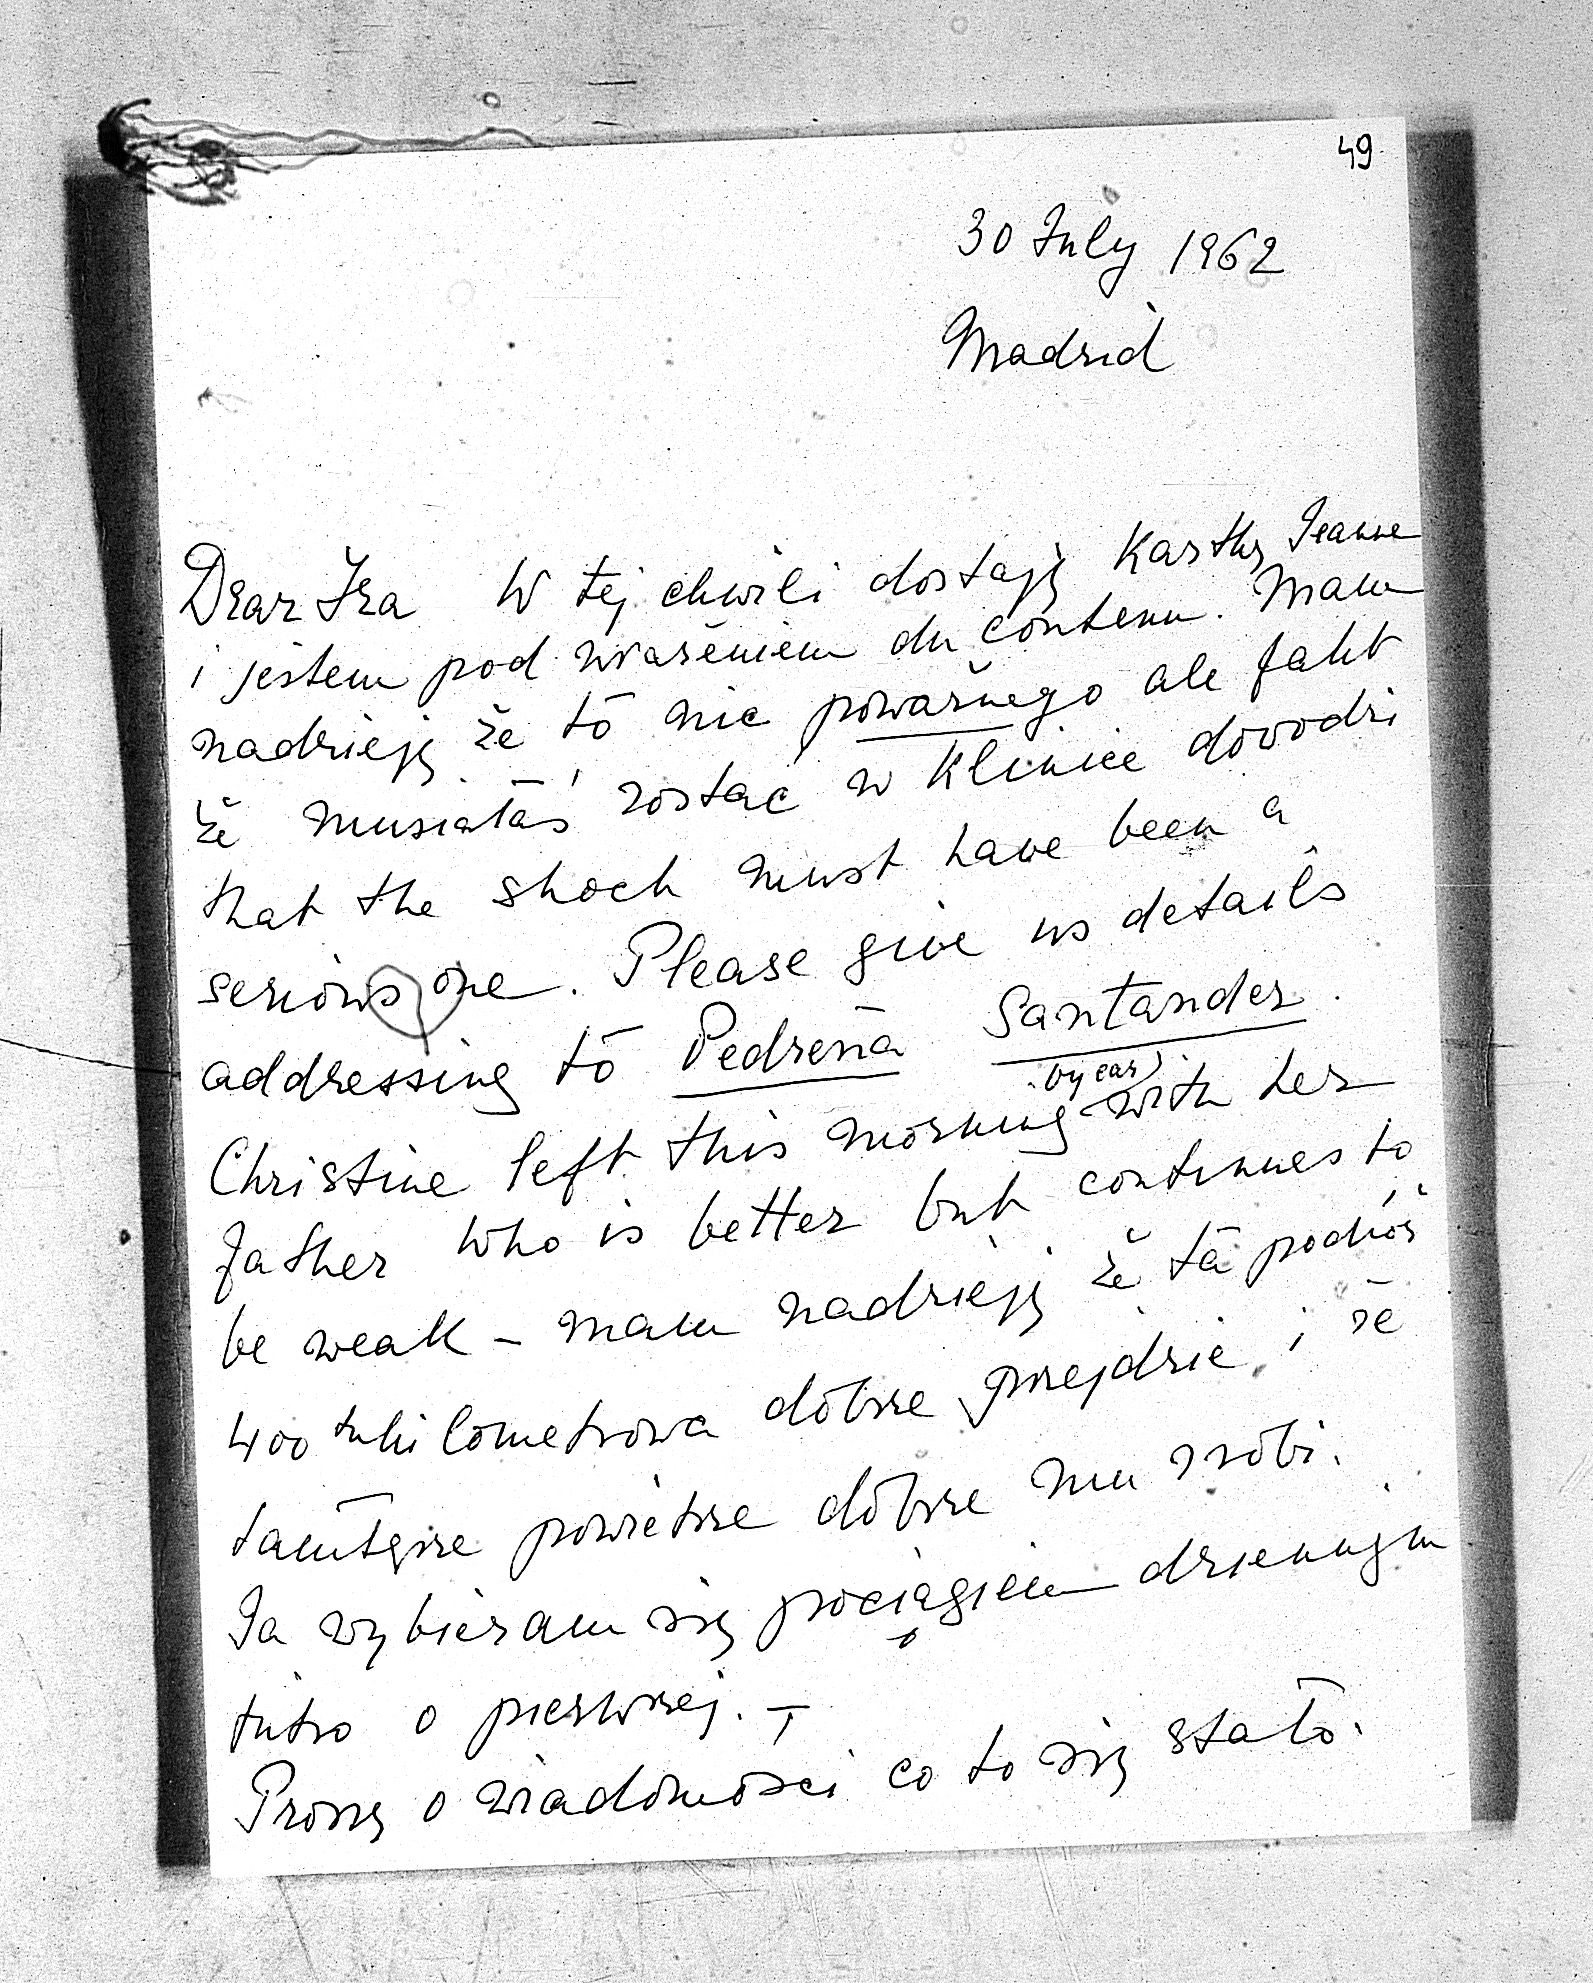 49
30 July 1962
Madrid
Dear Iza W tej chwili dostaję Kartkę Jeanne
i jestem pod wrażeniem du contenu. Mam
nadzieję że to nic poważnego ale fakt
że musiałaś zostać w Klinice dowodzi
that the shock must have been a
serious one. Please give us details
addressing to Pedreña Santander.
Christine left this morning (by car) with her
father who is better but continues to
be weak – mam nadzieję że ta podróż
400 kilometrowa dobrze przejdzie i że
tamtejsze powietrze dobrze mu zrobi.
Ja wybieram się pociągiem dziennym
jutro o pierwszej. –
Proszę o wiadomości co to się stało.